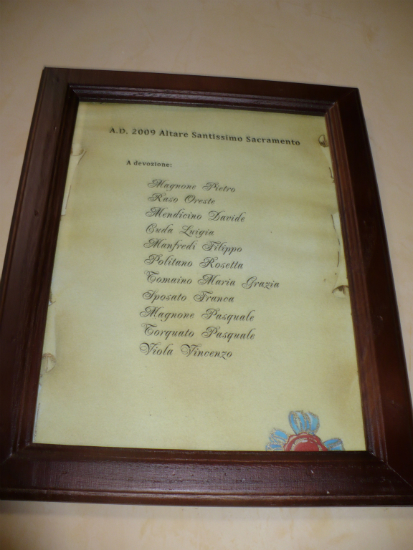 A.D. 2009 Altare Santissimo Sacramento
A devozione:
Magnone Pietro
Raso Oreste
Mendicino Davide
Onda Luigia
Manfredi Filippo
Politano Rosetta
Tomaino Maria Grazia
Sposato Franca
Magnone Pasquale
Torquato Pasquale
Viola Vincenzo